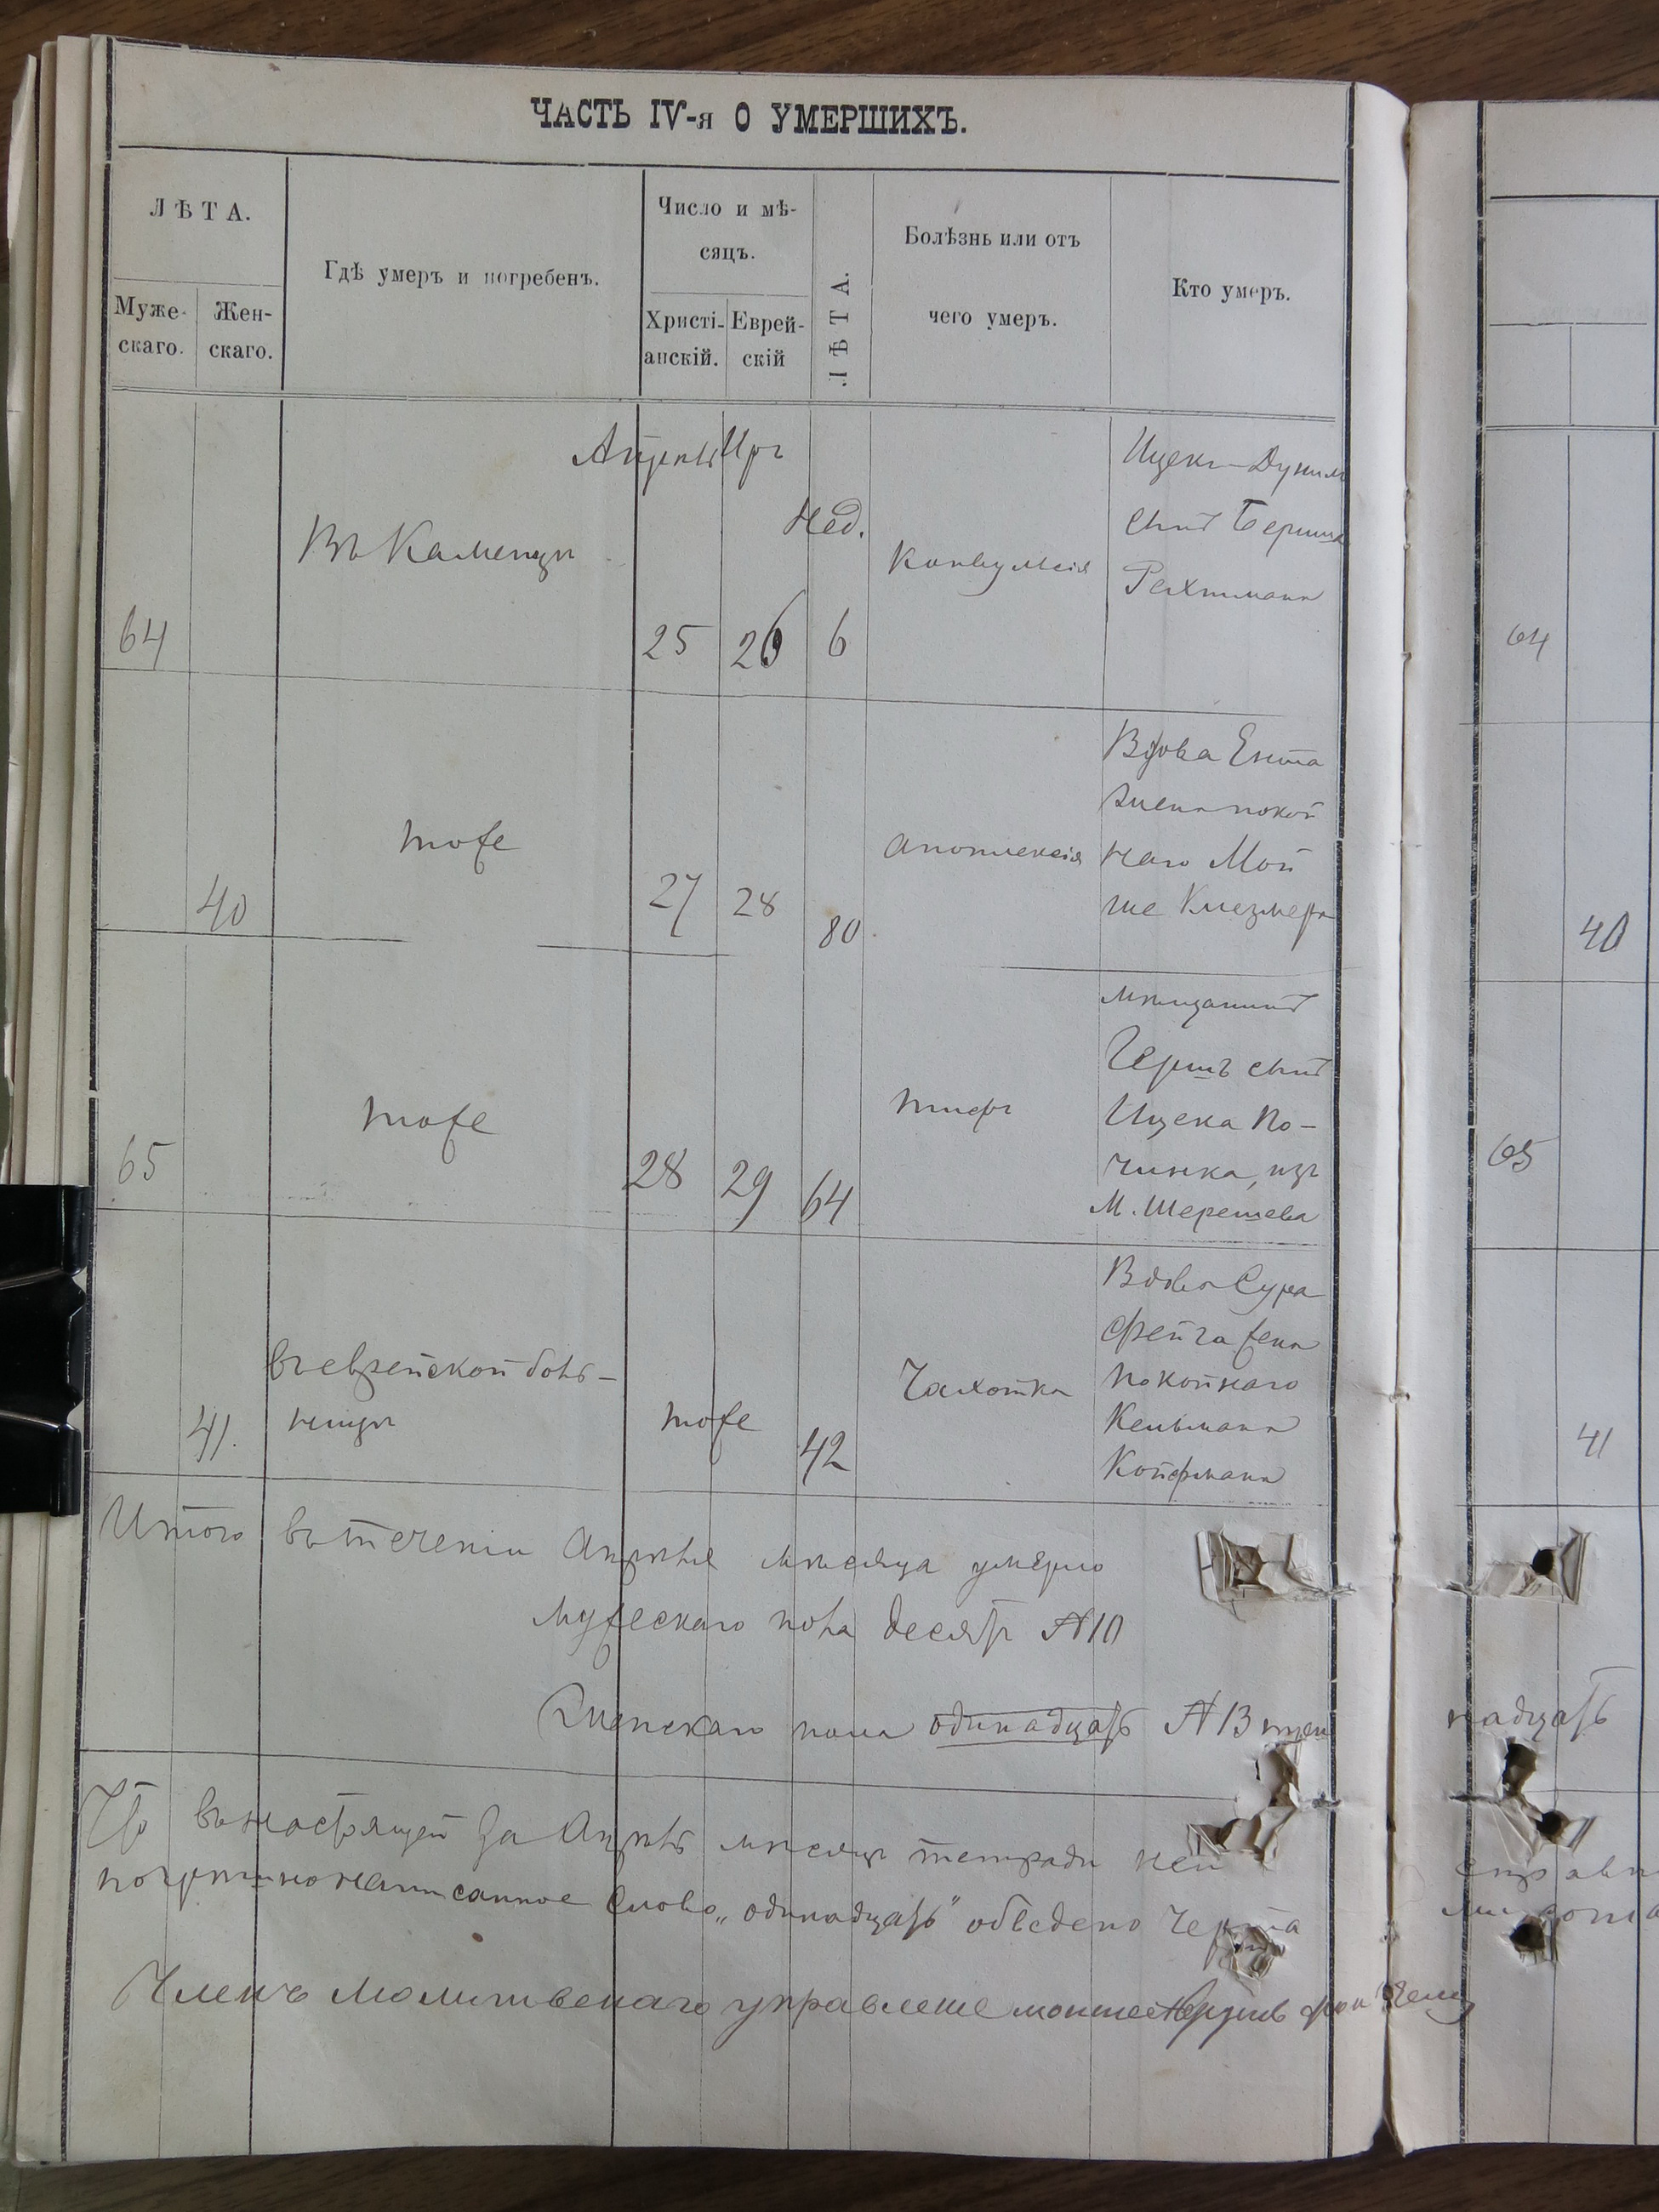 ЧАСТЬ IV-я О УМЕРШИХЪ.
ЛѢТА.
Муже-
скаго.
Жен-
скаго.
Гдѣ умеръ и погребенъ.
Число и мѣ-
сяцъ.
Христі-
анскій.
Еврей-
скій
ЛѢТА.
Болѣзнь или отъ
чего умеръ.
Кто умеръ.
Апрель Иръ
64
Въ Каменцѣ
25
26
Нед.
6
Конвульсія
Ицекъ-Дунимъ
сынъ Берша
64
40
тоже
27
28
80
апоплексія
Вдова Ента
жена покой
наго Мой
ше Клезмера
40
65
тоже
28
29
64
тифъ
мѣщанинъ
Гершъ сынъ
Ицека По-
чинка, изъ
М. Шерешева
65
41.
въ еврейской боль-
ницѣ
тоже
42
Чахотка
Вдова Сура
Фейга жена
покойнаго
Кельмана
Койфмана
41
Итого въ теченіи Апрѣля мѣсяца умерло
мужескаго пола десять № 10
Женскаго пола одинадцать № 13 три надцать
Что въ настоящей за Апрѣль мѣсяцъ тетради неи справ
погрѣшно написанное слово „одинадцать" обведено черта ми
Членъ молитвенаго управленіе